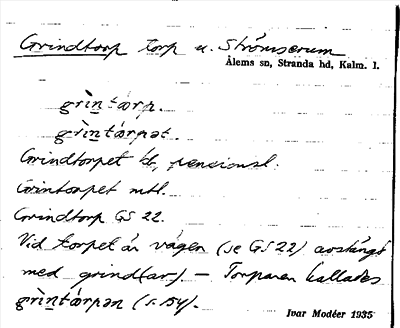 Grindtorp torp u. Strömserum
Ålems sn, Stranda hd, Kalm. l.
grìntårp.
grìntårpət.
Grindtorpet tb, pensionsl.
Grintorpet mtl.
Grindtorp GS 22.
Vid torpet är vägen (se GS 22) avstängd
med grind(ar). — Torparen kallades
grìntårpən (s. 154).
Ivar Modéer 1935